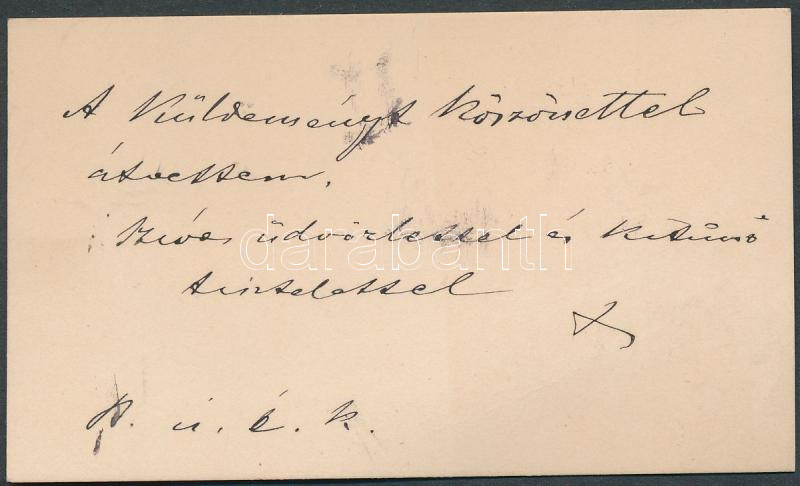 A Küldeményt köszönettel
átvettem.
Szíves üdvözlettel és kitűnő
tisztelettel
B. ú. é. k.
darabanth